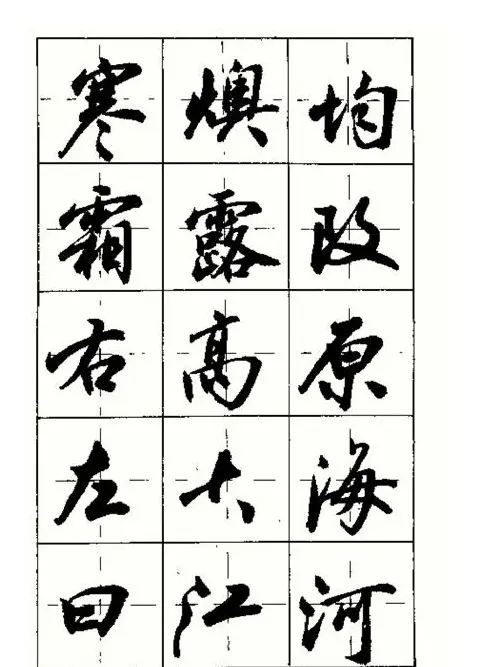 寒燠均
霜露改
右高原
左大海
曰江河